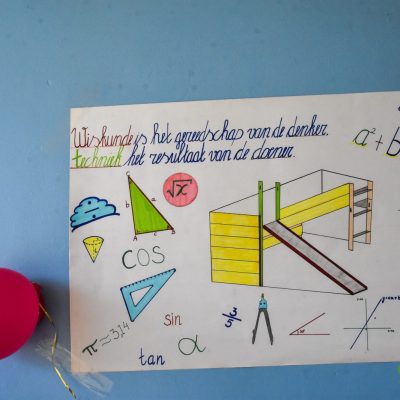 Wiskunde is het gereedschap van de denker.
techniek het resultaat van de doener.
a² + b
C
b
a
A
c
B
√x
COS
π ≈ 3,14
sin
tan
α